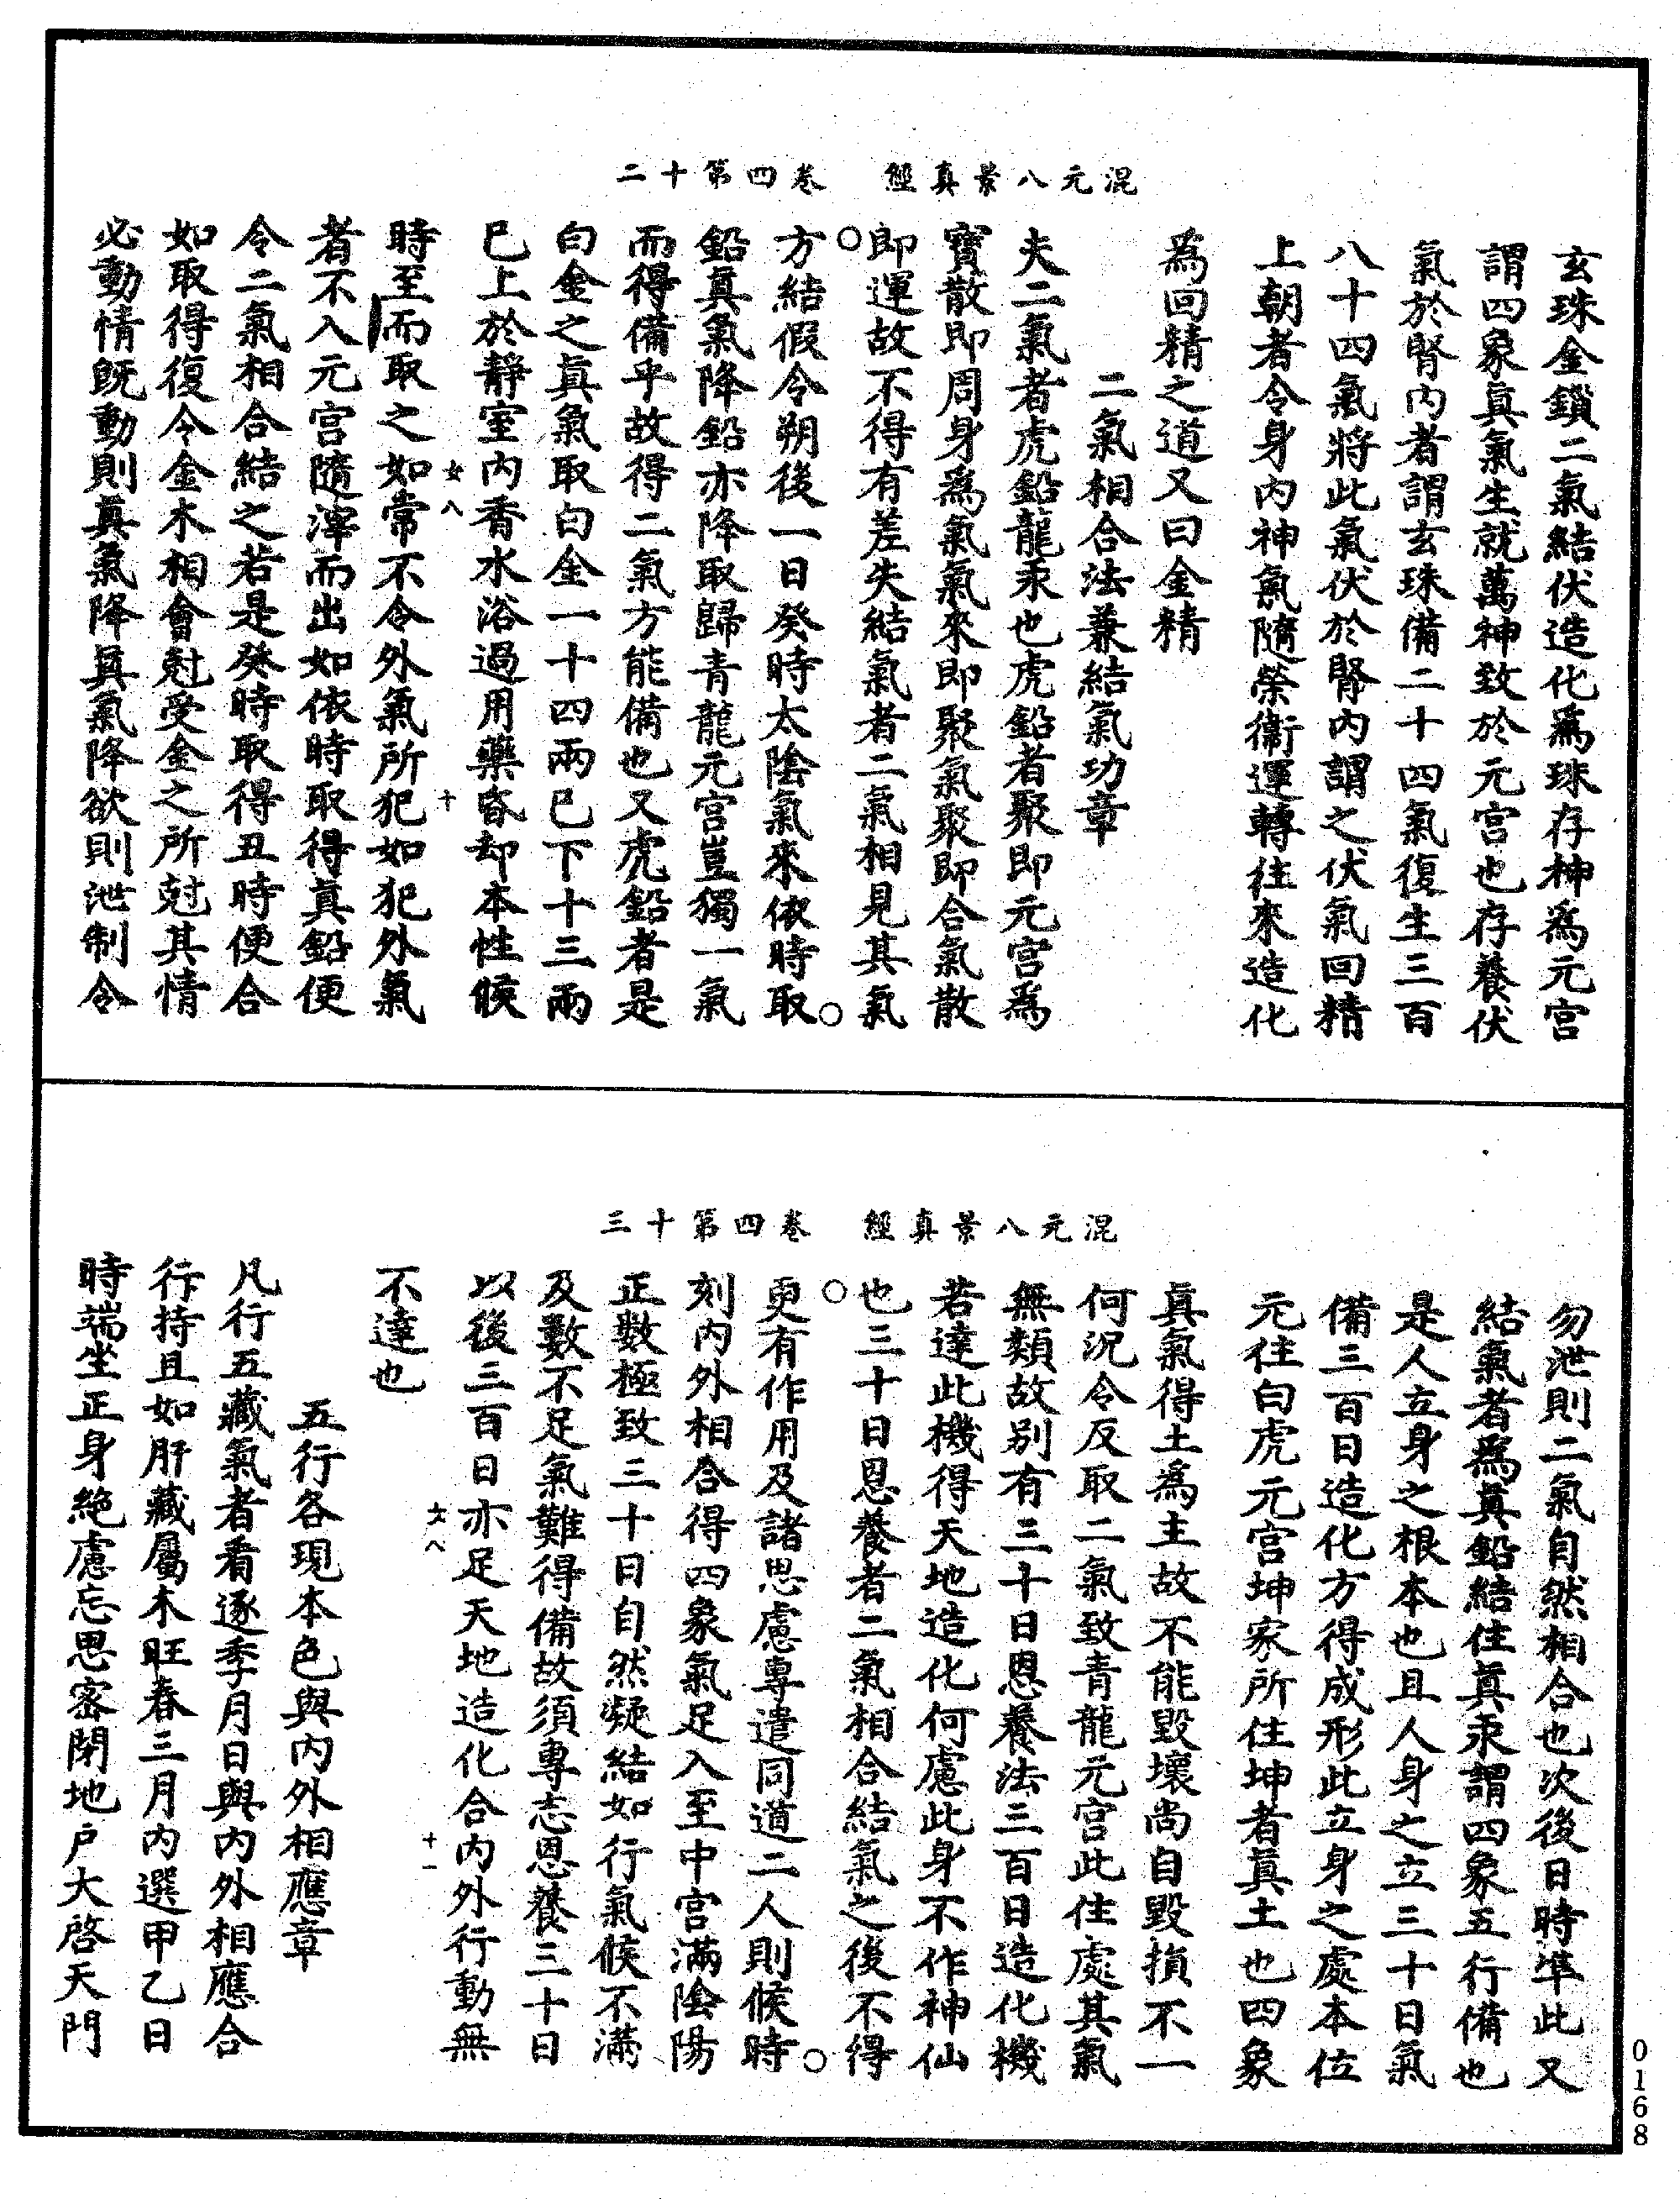 混元八景真經　卷四第十二
玄珠金鎖二氣結伏造化爲珠存神爲元宮
謂四象眞氣生就萬神致於元宮也存養伏
氣於腎內者謂玄珠備二十四氣復生三百
八十四氣將此氣伏於腎內謂之伏氣回精
上朝者令身內神氣隨榮衞運轉往來造化
爲回精之道又曰金精
二氣相合法兼結氣功章
夫二氣者虎鉛龍汞也虎鉛者聚即元宮爲
寶散即周身爲氣氣來即聚氣聚即合氣散
即運故不得有差失結氣者二氣相見其氣
方結假令朔後一日癸時太陰氣來依時取
鉛眞氣降鉛亦降取歸青龍元宮豈獨一氣
而得備乎故得二氣方能備也又虎鉛者是
白金之眞氣取白金一十四兩已下十三兩
已上於靜室內香水浴過用藥昏却本性候
女八
十
時至而取之如常不令外氣所犯如犯外氣
者不入元宮隨滓而出如依時取得眞鉛便
令二氣相合結之若是癸時取得丑時便合
如取得復令金木相會尅受金之所尅其情
必動情旣動則眞氣降眞氣降欲則泄制令
混元八景真經　卷四第十三
勿泄則二氣自然相合也次後日時準此又
結氣者爲眞鉛結住眞汞謂四象五行備也
是人立身之根本也且人身之立三十日氣
備三百日造化方得成形此立身之處本位
元住白虎元宮坤家所住坤者眞土也四象
眞氣得土爲主故不能毀壞尚自毀損不一
何況令反取二氣致青龍元宮此住處其氣
無類故別有三十日恩養法三百日造化機
若達此機得天地造化何慮此身不作神仙
也三十日恩養者二氣相合結氣之後不得
更有作用及諸思慮專遣同道二人則候時
刻內外相合得四象氣足入至中宮滿陰陽
正數極致三十日自然凝結如行氣候不滿
及數不足氣難得備故須專志恩養三十日
以後三百日亦足天地造化合內外行動無
女八
十一
不達也
五行各現本色與內外相應章
凡行五藏氣者看逐季月日與內外相應合
行持且如肝藏屬木旺春三月內選甲乙日
時端坐正身絕慮忘思密閉地戶大啓天門
0168